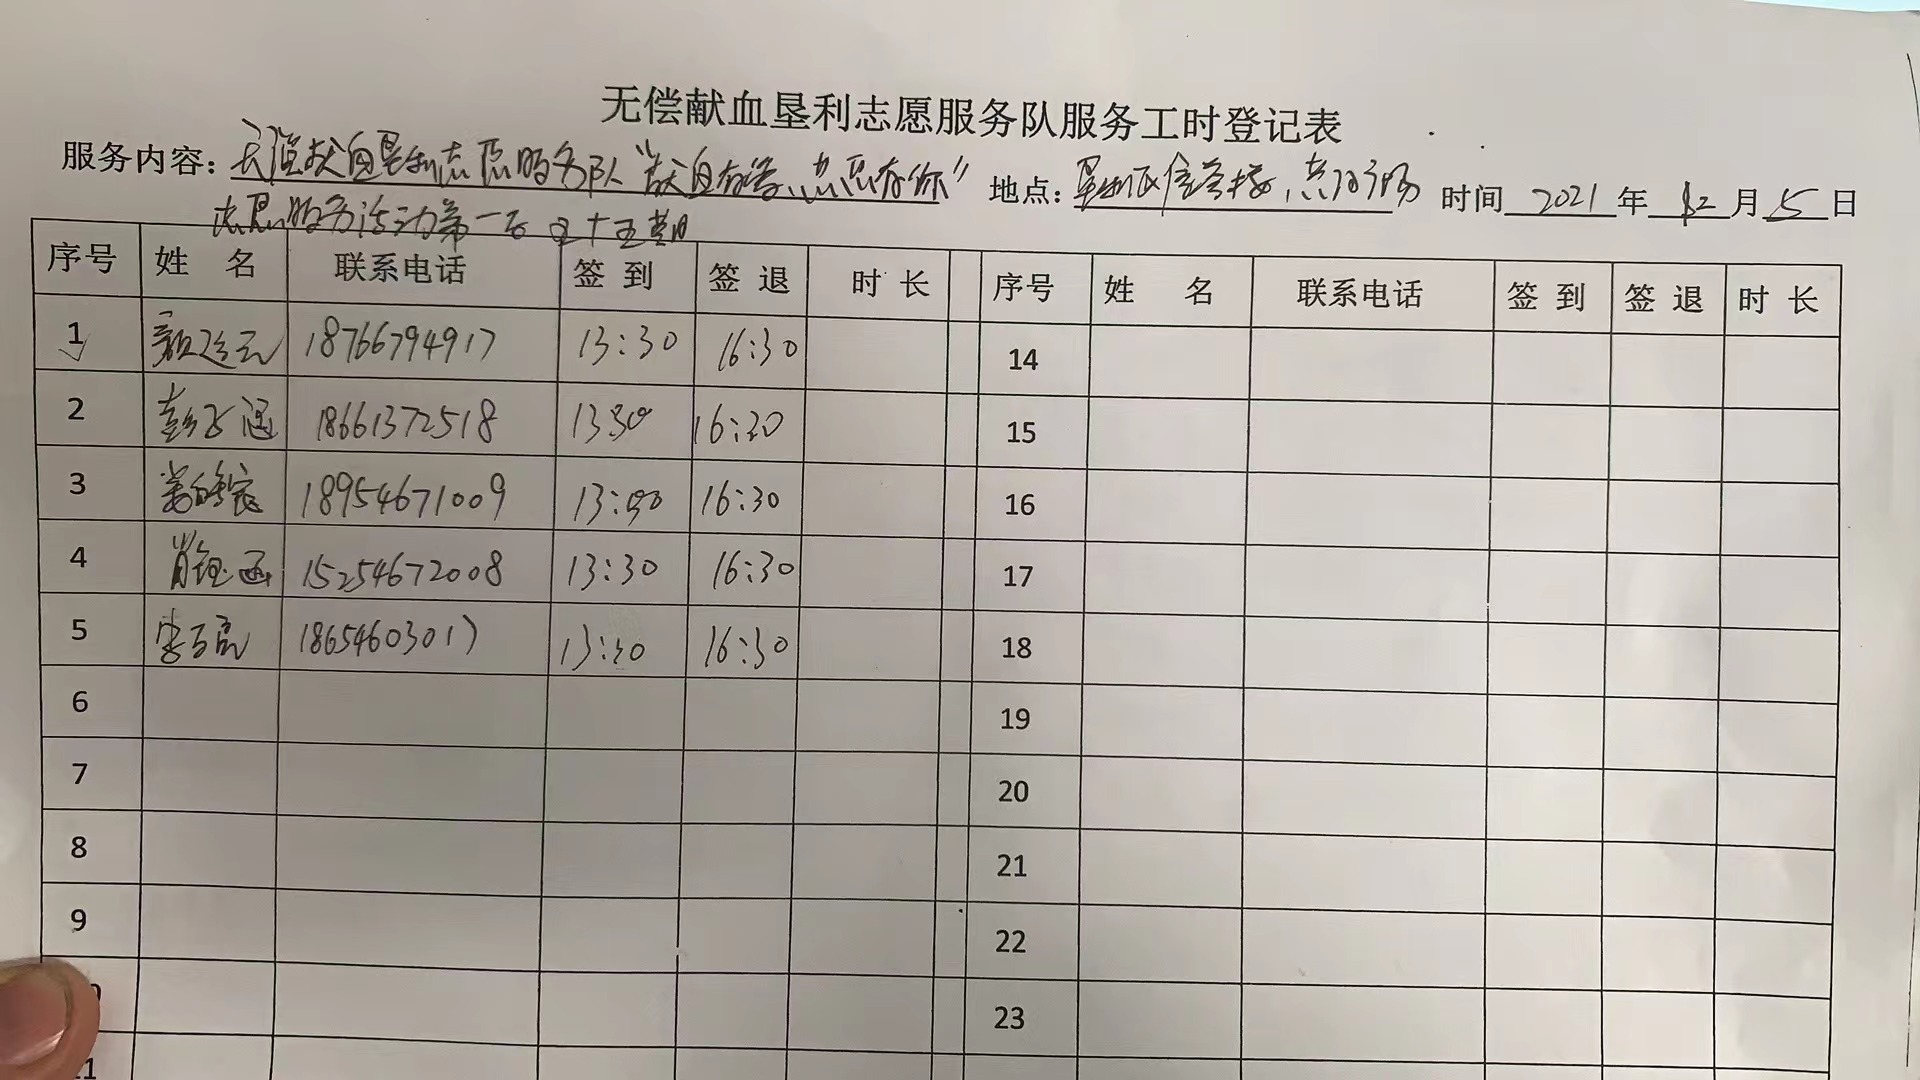 无偿献血垦利志愿服务队服务工时登记表
服务内容：无偿献血垦利志愿服务队“献血有我、志愿有你” 地点：垦利区 时间 2021 年 12 月 5 日
志愿服务活动第一百五十五期
序号 姓 名 联系电话 签 到 签 退 时 长 序号 姓 名 联系电话 签 到 签 退 时 长
1 18766794917 13:30 16:30 14
2 彭子涵 18661372518 1330 16:30 15
3 18954671009 13:30 16:30 16
4 肖钰涵 15254672008 13:30 16:30 17
5 李百亮 18654603017 13:30 16:30 18
6 19
7 20
8 21
9 22
23